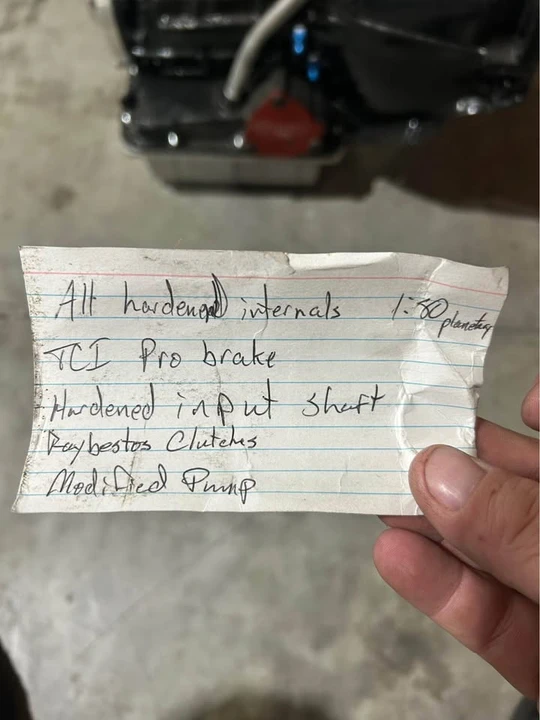 All hardened internals 1:80 planetary
TCI Pro brake
Hardened input shaft
Raybestos Clutches
Modified Pump